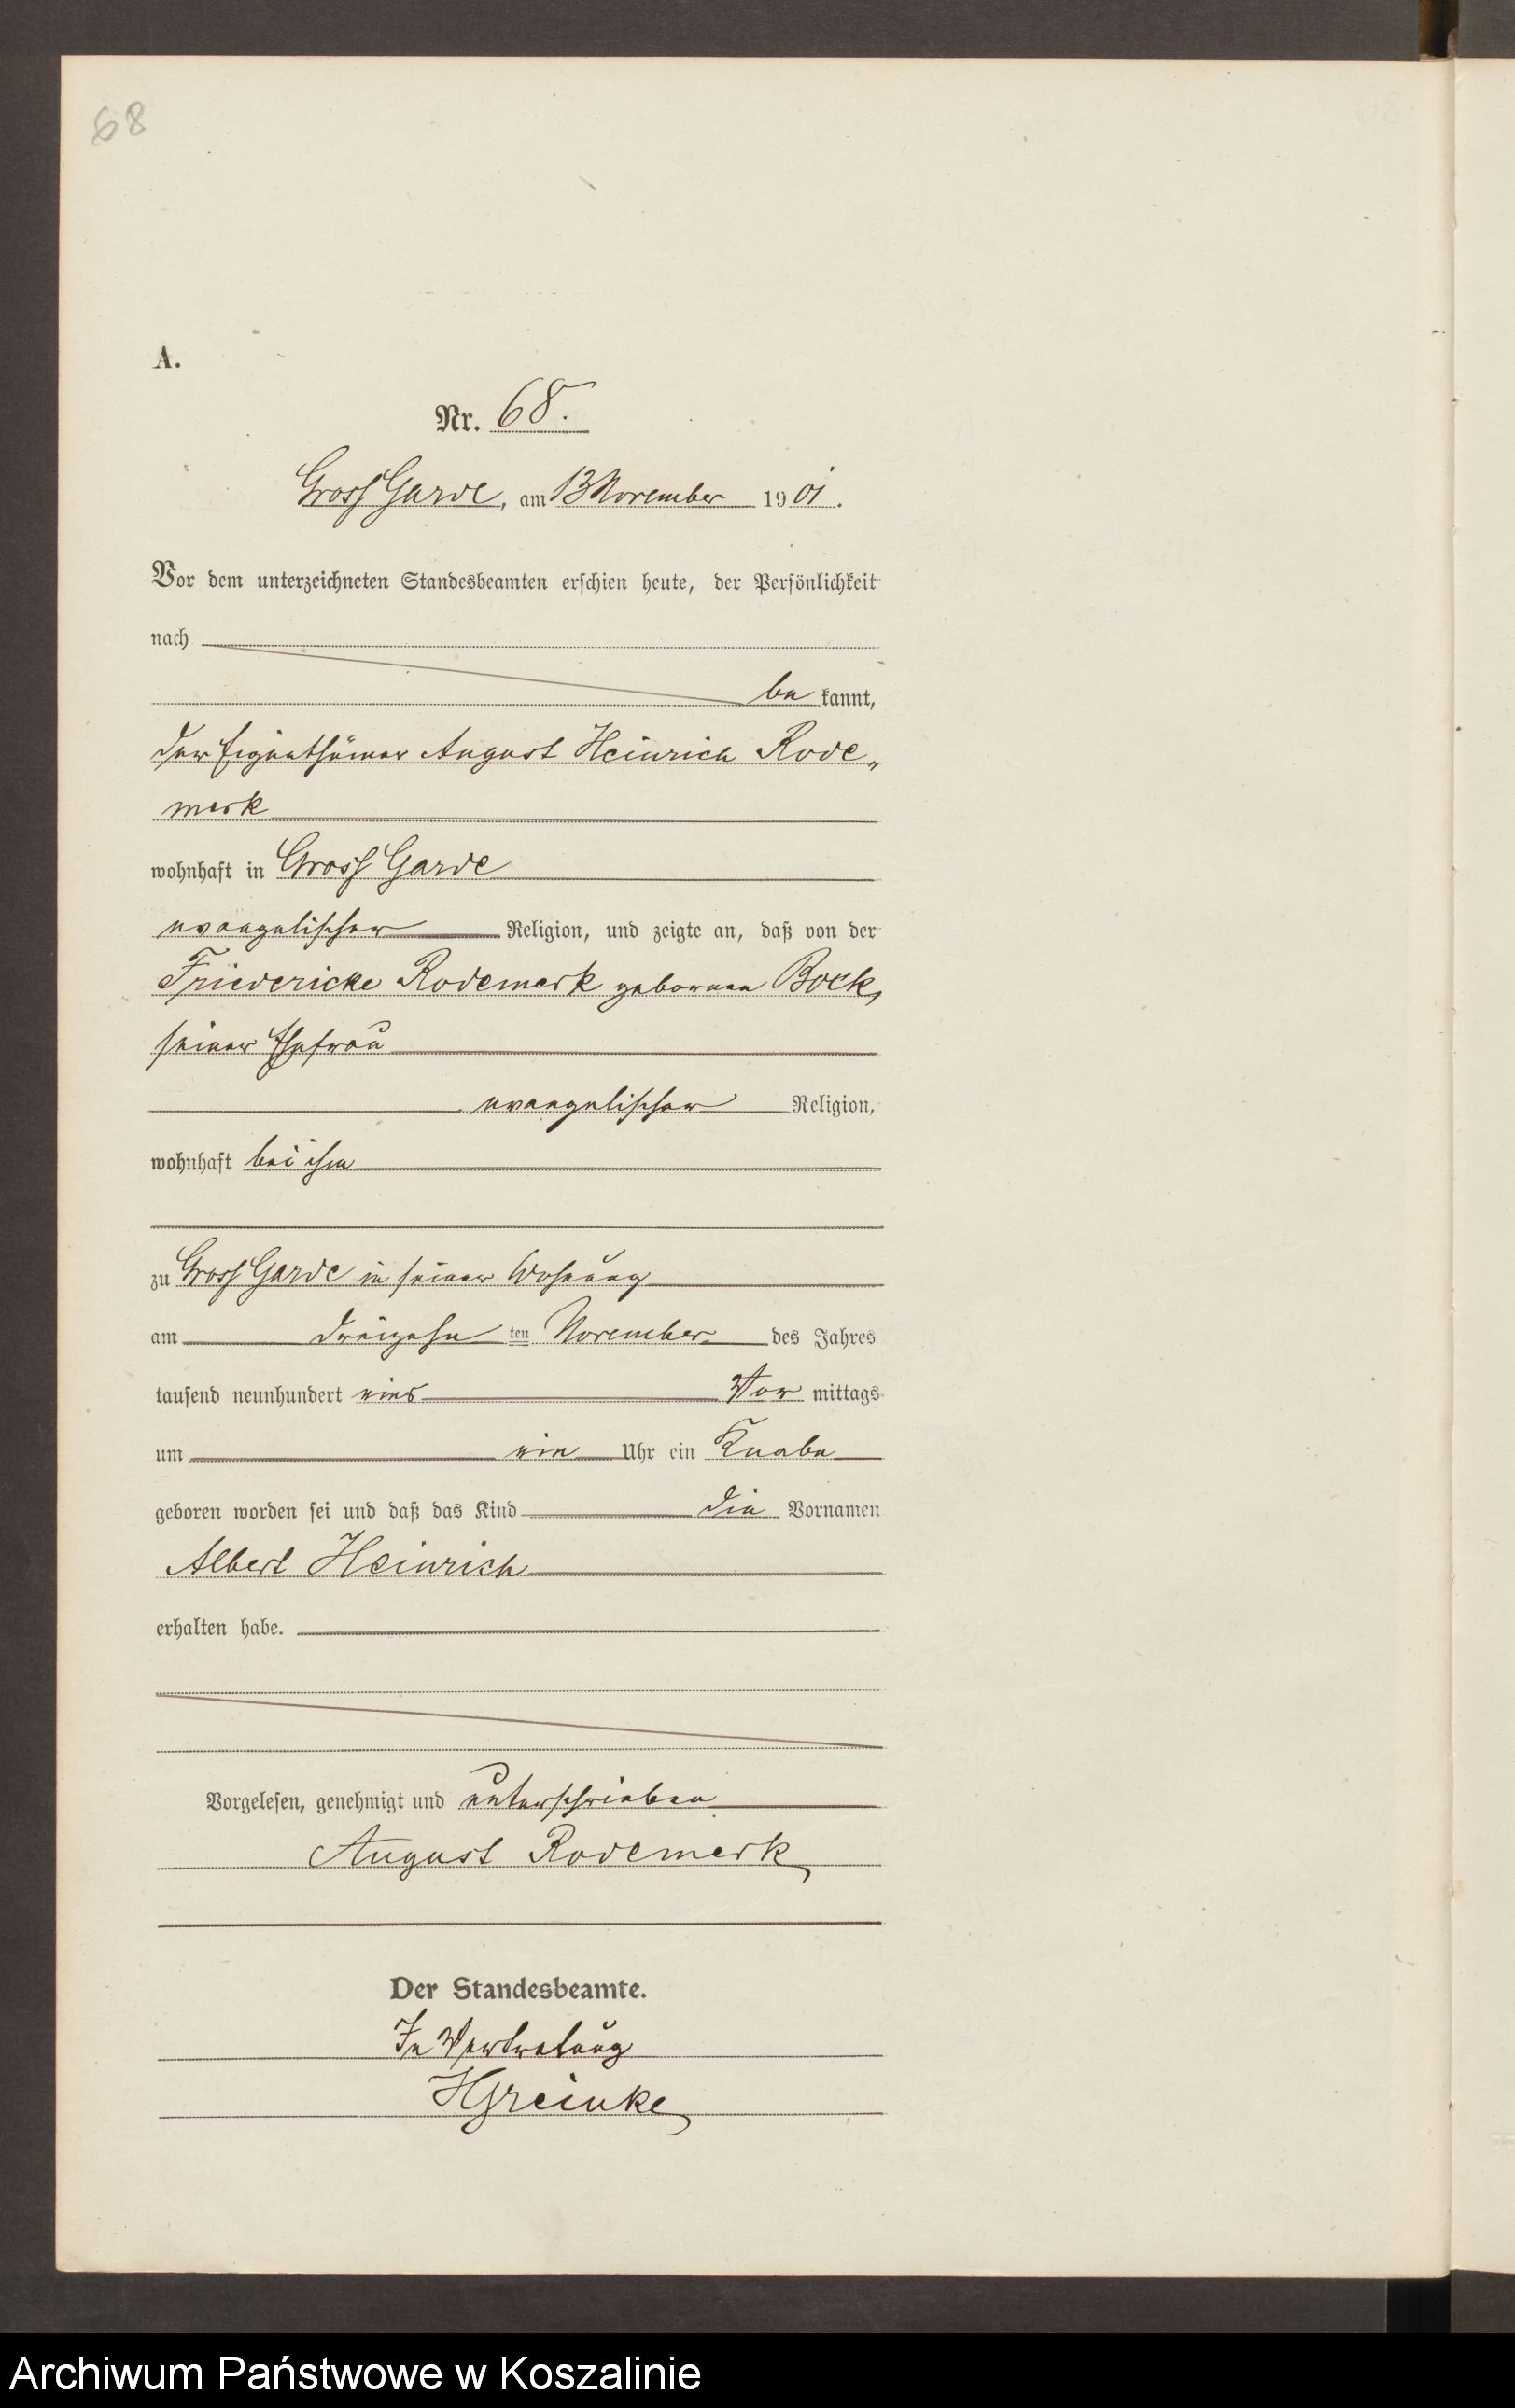 68
A.
Nr. 68.
Gross Garde, am 13 November 1901.
Vor dem unterzeichneten Standesbeamten erschien heute, der Persönlichkeit
nach
be kannt,
der Eigenthümer August Heinrich Rode„
merk
wohnhaft in Gross Garde
evangelischer Religion, und zeigte an, daß von der
Friedericke Rodemerk geborenen Bock,
seiner Ehefrau
evangelischer Religion,
wohnhaft bei ihm
zu Gross Garde in seiner Wohnung
am dreizehn ten November des Jahres
tausend neunhundert eins Vor mittags
um ein Uhr ein Knabe
geboren worden sei und daß das Kind die Vornamen
Albert Heinrich
erhalten habe.
Vorgelesen, genehmigt und unterschrieben
August Rodemerk
Der Standesbeamte.
In Vertretung
HGreinke
Archiwum Państwowe w Koszalinie